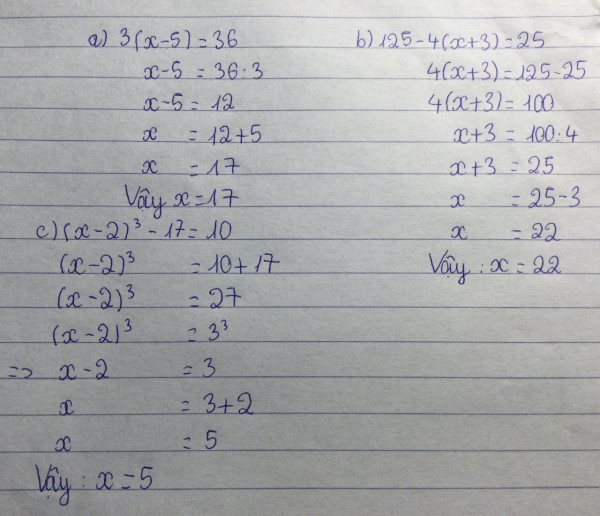 a) 3(x-5) = 36
x-5 = 36:3
x-5 = 12
x = 12+5
x = 17
Vậy x = 17
b) 125-4(x+3) = 25
4(x+3) = 125-25
4(x+3) = 100
x+3 = 100:4
x+3 = 25
x = 25-3
x = 22
Vậy : x = 22
c) (x-2)³ - 17 = 10
(x-2)³ = 10+17
(x-2)³ = 27
(x-2)³ = 3³
=> x-2 = 3
x = 3+2
x = 5
Vậy : x = 5